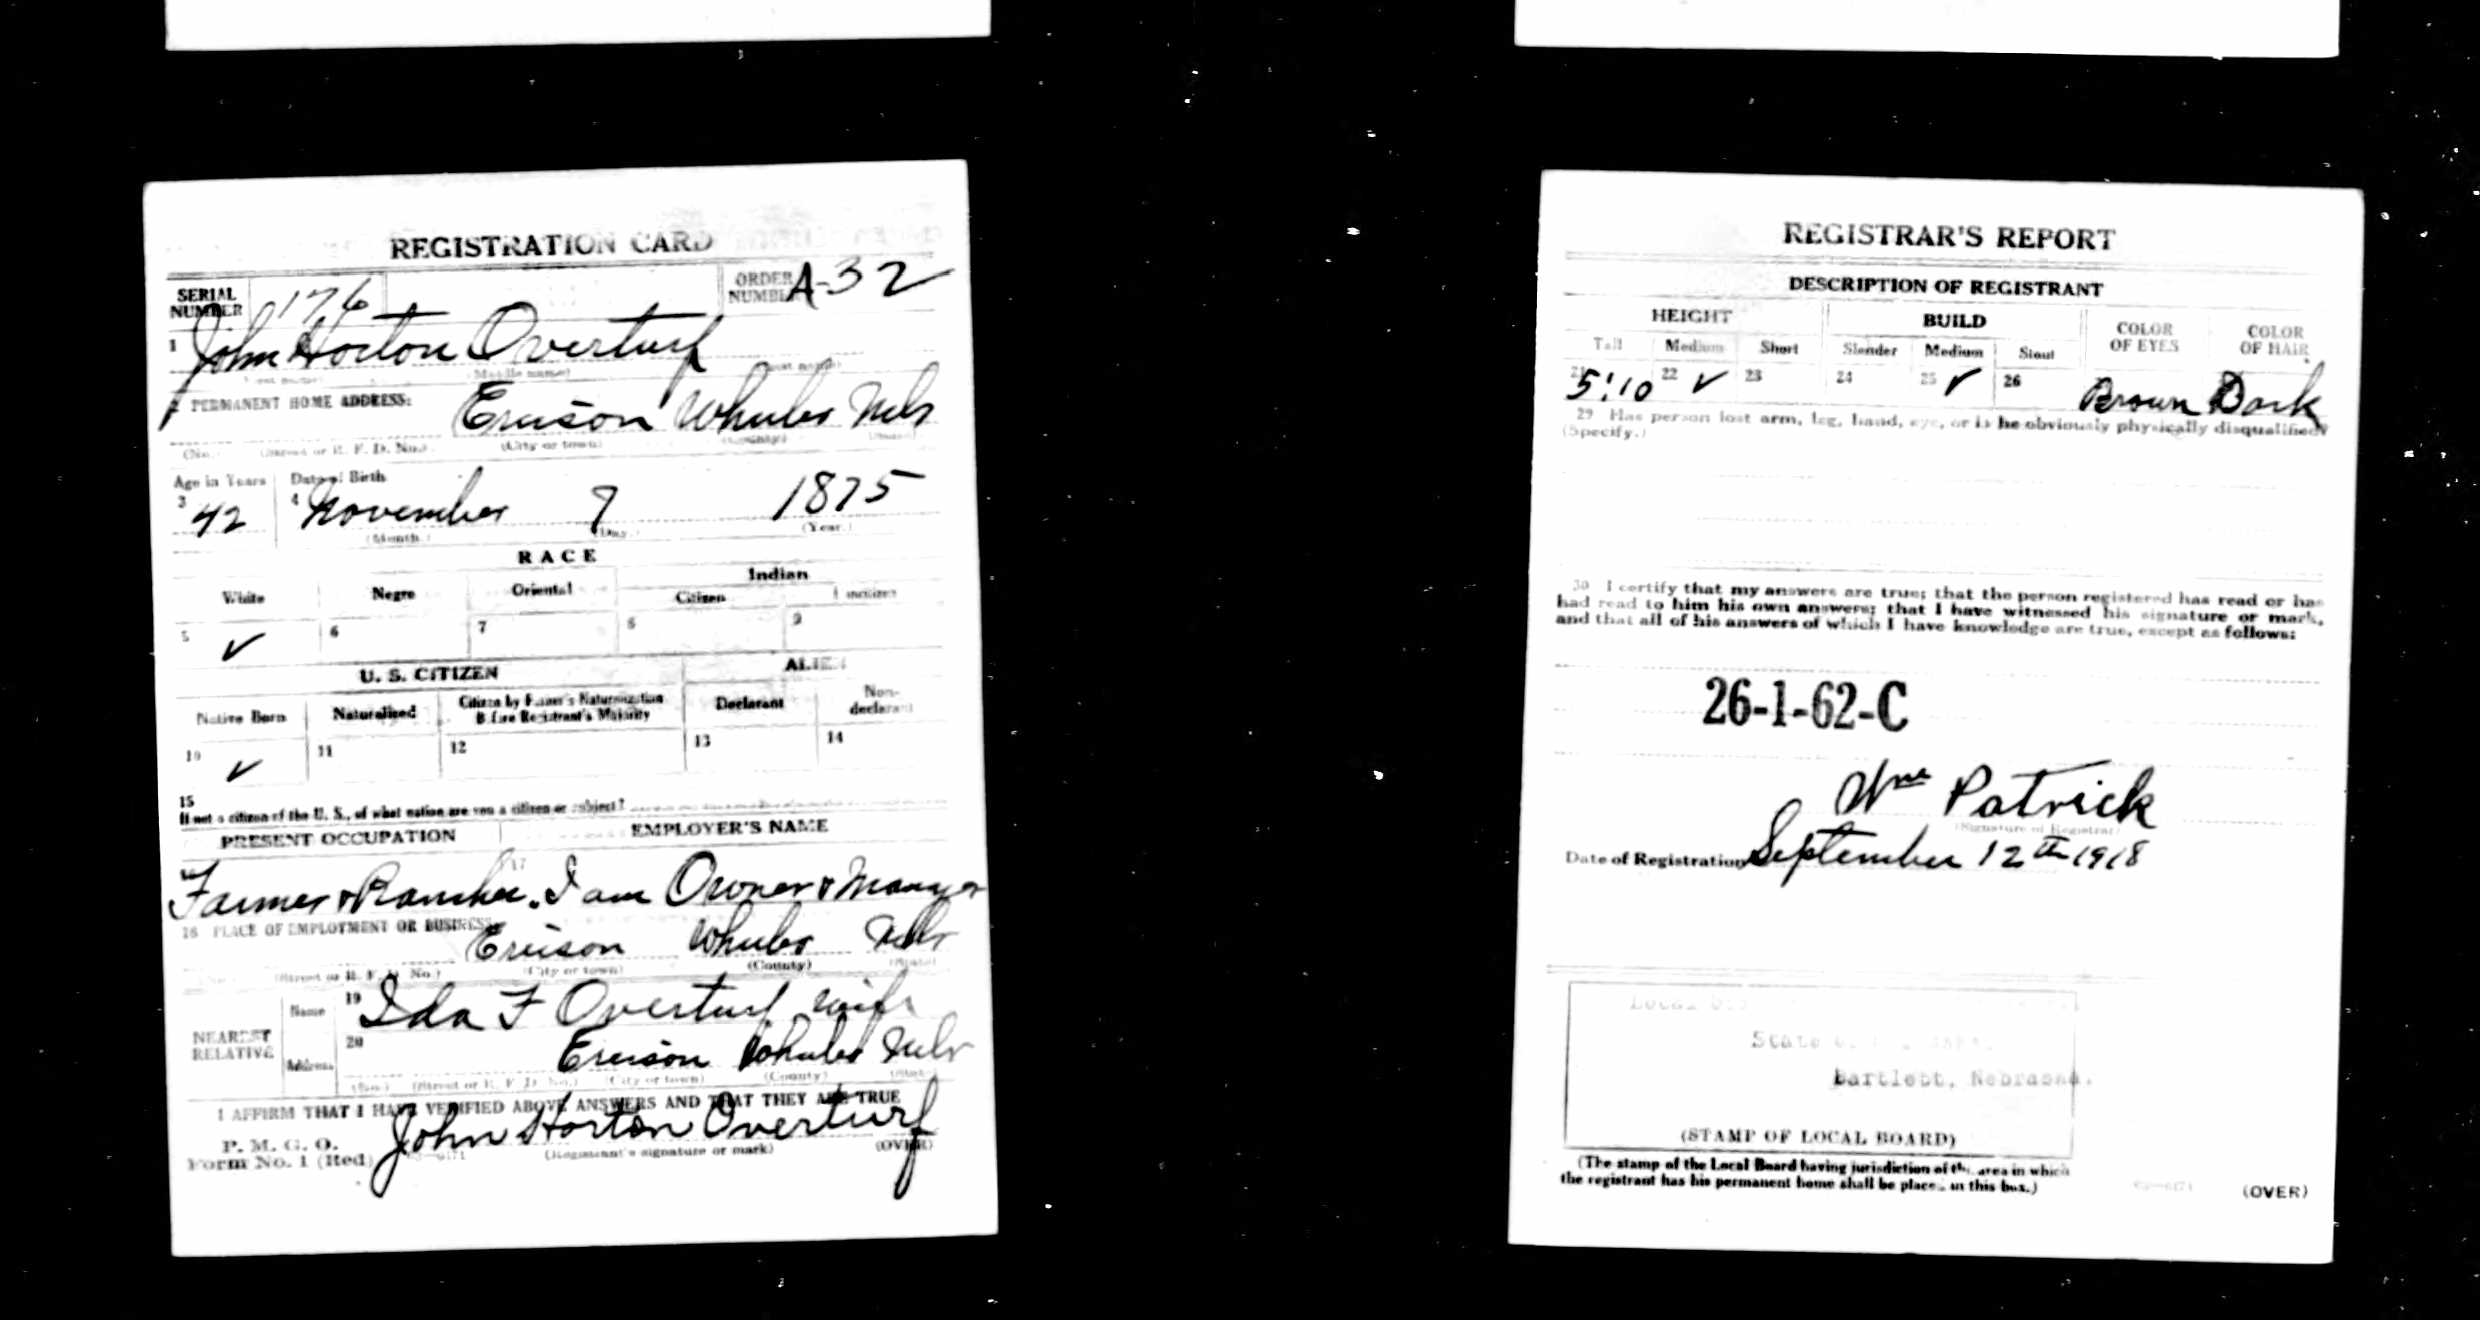 REGISTRATION CARD
SERIAL NUMBER 176 ORDER NUMBER A-32
1 John Horton Overturf
(Middle name)
2 PERMANENT HOME ADDRESS: Ericson Wheeler Nebr
(No.) (Street or R. F. D. No.) (City or town) (County) (State)
Age in Years Date of Birth
3 42 4 November 7 1875
(Month.) (Day.) (Year.)
RACE
White Negro Oriental Indian
Citizen Noncitizen
5 ✓ 6 7 8 9
U. S. CITIZEN ALIEN
Native Born Naturalized Citizen by Father's Naturalization Before Registrant's Majority Declarant Non-declarant
10 ✓ 11 12 13 14
15
If not a citizen of the U. S., of what nation are you a citizen or subject?
PRESENT OCCUPATION EMPLOYER'S NAME
17
Farmer & Rancher. I am Owner & Manager
18 PLACE OF EMPLOYMENT OR BUSINESS: Ericson Wheeler Nebr
(Street or R. F. D. No.) (City or town) (County) (State)
NEAREST RELATIVE
Name 19 Ida F Overturf wife
Address 20 Ericson Wheeler Nebr
(No.) (Street or R. F. D. No.) (City or town) (County) (State)
I AFFIRM THAT I HAVE VERIFIED ABOVE ANSWERS AND THAT THEY ARE TRUE
P. M. G. O.
Form No. 1 (Red) John Horton Overturf
(Registrant's signature or mark) (OVER)
REGISTRAR'S REPORT
DESCRIPTION OF REGISTRANT
HEIGHT BUILD COLOR OF EYES COLOR OF HAIR
Tall Medium Short Slender Medium Stout
21 5'10 22 ✓ 23 24 25 ✓ 26 Brown Dark
29 Has person lost arm, leg, hand, eye, or is he obviously physically disqualified?
(Specify.)
30 I certify that my answers are true; that the person registered has read or has
had read to him his own answers; that I have witnessed his signature or mark,
and that all of his answers of which I have knowledge are true, except as follows:
26-1-62-C
Wm Patrick
(Signature of Registrar)
Date of Registration September 12th 1918
Local
State
Bartlett, Nebraska.
(STAMP OF LOCAL BOARD)
(The stamp of the Local Board having jurisdiction of the area in which
the registrant has his permanent home shall be placed in this box.)
(OVER)